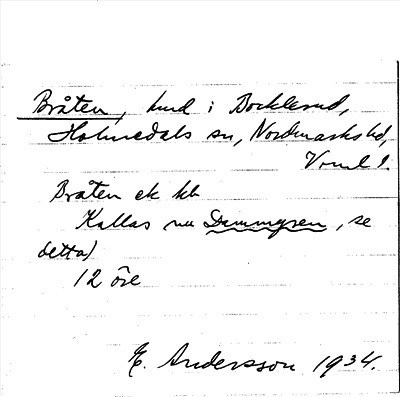 Bråten, hmd i Bocklerud,
Holmedals sn, Nordmarks hd,
Vrml l.
Bråten ek kb
Kallas nu Dammgren, se
detta)
12 öre
E. Andersson 1934.